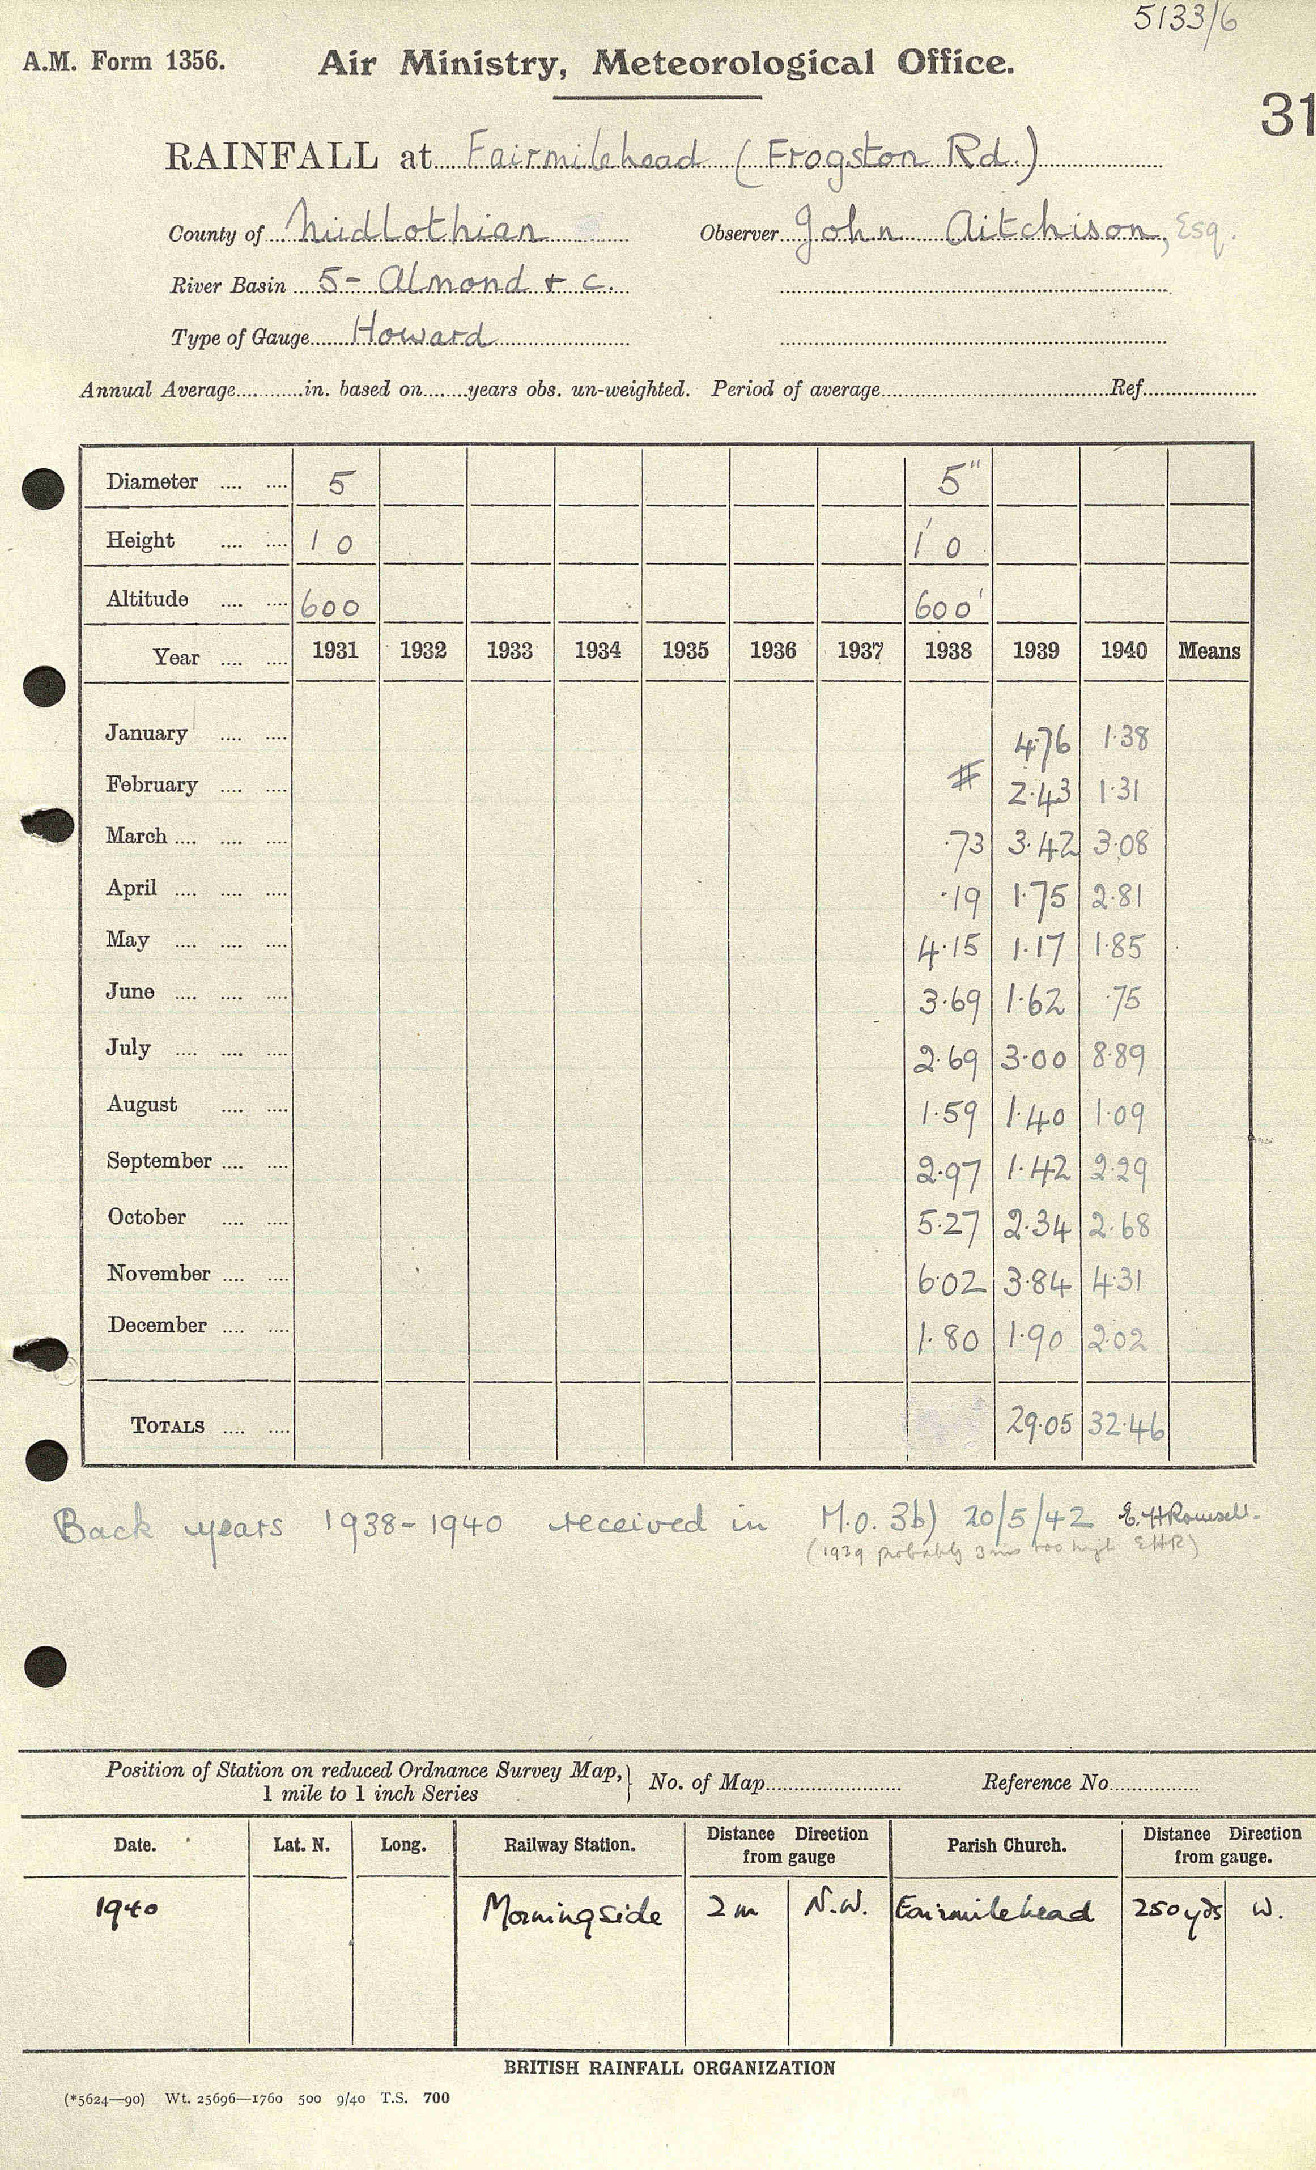 5133/6
A.M. Form 1356. Air Ministry, Meteorological Office.
31
RAINFALL at Fairmilehead (Frogston Rd.)
County of Midlothian Observer John Aitchison, Esq.
River Basin 5- Almond & c.
Type of Gauge Howard
Annual Average............in. based on.......years obs. un-weighted. Period of average.......................................Ref...................
Diameter .... .... 5 5"
Height .... .... 1 0 1' 0
Altitude .... .... 600 600'
Year .... .... 1931 1932 1933 1934 1935 1936 1937 1938 1939 1940 Means
January .... .... 4.76 1.38
February .... .... # 2.43 1.31
March .... .... .... .73 3.42 3.08
April .... .... .... .19 1.75 2.81
May .... .... .... 4.15 1.17 1.85
June .... .... .... 3.69 1.62 .75
July .... .... .... 2.69 3.00 8.89
August .... .... 1.59 1.40 1.09
September .... .... 2.97 1.42 2.29
October .... .... 5.27 2.34 2.68
November .... .... 6.02 3.84 4.31
December .... .... 1.80 1.90 2.02
TOTALS .... .... 29.05 32.46
Back years 1938-1940 received in M.O. 3b) 20/5/42 E. H Rowsell.
(1939 probably 3 ins too high EHR)
Position of Station on reduced Ordnance Survey Map, } No. of Map........................ Reference No...............
1 mile to 1 inch Series
Date. Lat. N. Long. Railway Station. Distance Direction from gauge Parish Church. Distance Direction from gauge.
1940 Morningside 2 m N.W. Fairmilehead 250 yds W.
BRITISH RAINFALL ORGANIZATION
(*5624—90) Wt. 25696—1760 500 9/40 T.S. 700